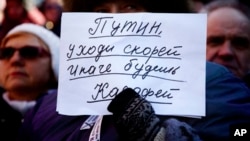 Путин,
уходи скорей
Иначе будешь
Каддафей
AP